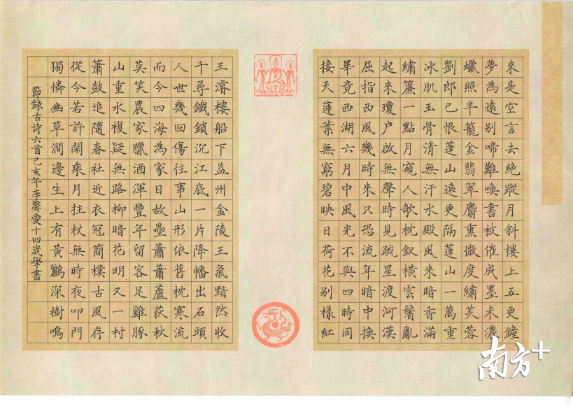 來是空言去絕蹤月斜樓上五更鐘
夢為遠別啼難喚書被催成墨未濃
蠟照半籠金翡翠麝熏微度繡芙蓉
劉郎已恨蓬山遠更隔蓬山一萬重
冰肌玉骨清無汗水殿風來暗香滿
繡簾一點月窺人欹枕釵橫雲鬢亂
起來瓊戶啟無聲時見疏星渡河漢
屈指西風幾時來只恐流年暗中換
畢竟西湖六月中風光不與四時同
接天蓮葉無窮碧映日荷花別樣紅
王濬樓船下益州金陵王氣黯然收
千尋鐵鎖沉江底一片降幡出石頭
人世幾回傷往事山形依舊枕寒流
而今四海為家日故壘蕭蕭蘆荻秋
莫笑農家臘酒渾豐年留客足雞豚
山重水複疑無路柳暗花明又一村
簫鼓追隨春社近衣冠簡樸古風存
從今若許閒乘月拄杖無時夜叩門
獨憐幽草澗邊生上有黃鸝深樹鳴
節錄古詩六首己亥年李馨愛十四歲學書
南方+